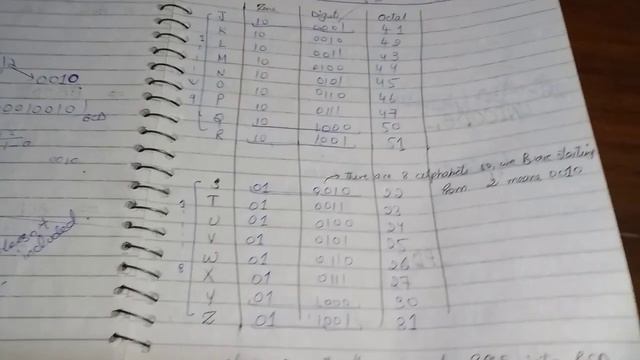 Zone Digit Octal
J 10 0001 41
K 10 0010 42
L 10 0011 43
M 10 0100 44
N 10 0101 45
O 10 0110 46
P 10 0111 47
Q 10 1000 50
R 10 1001 51
There are 8 alphabets so, we R are starting
from 2 means 0010
S 01 0010 22
T 01 0011 23
U 01 0100 24
V 01 0101 25
W 01 0110 26
X 01 0111 27
Y 01 1000 30
Z 01 1001 31
0010
00100101
BCD
0010
included